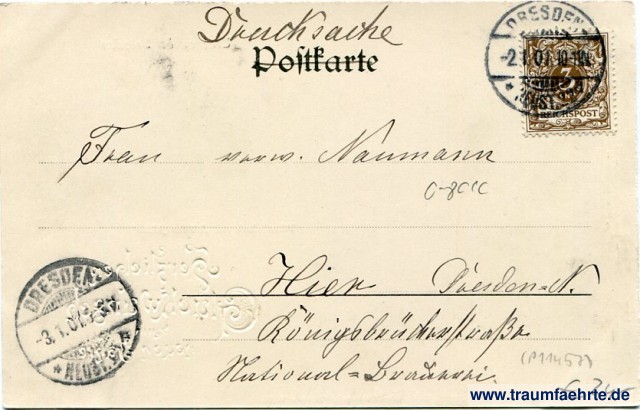 Drucksache
Postkarte
DRESDEN
-2.1.01.10-11V.
* NEUST.
3
REICHSPOST
Frau verw. Naumann
DRESDEN-
-3.1.01.
* NEUST.
Herzlichen
Hier Dresden-N.
Königsbrückerstraße
National-Brauerei.
(P11457)
www.traumfaehrte.de